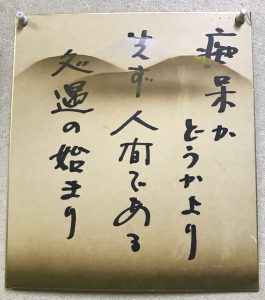 痴呆かどうかより
先ず人間である
処遇の始まり